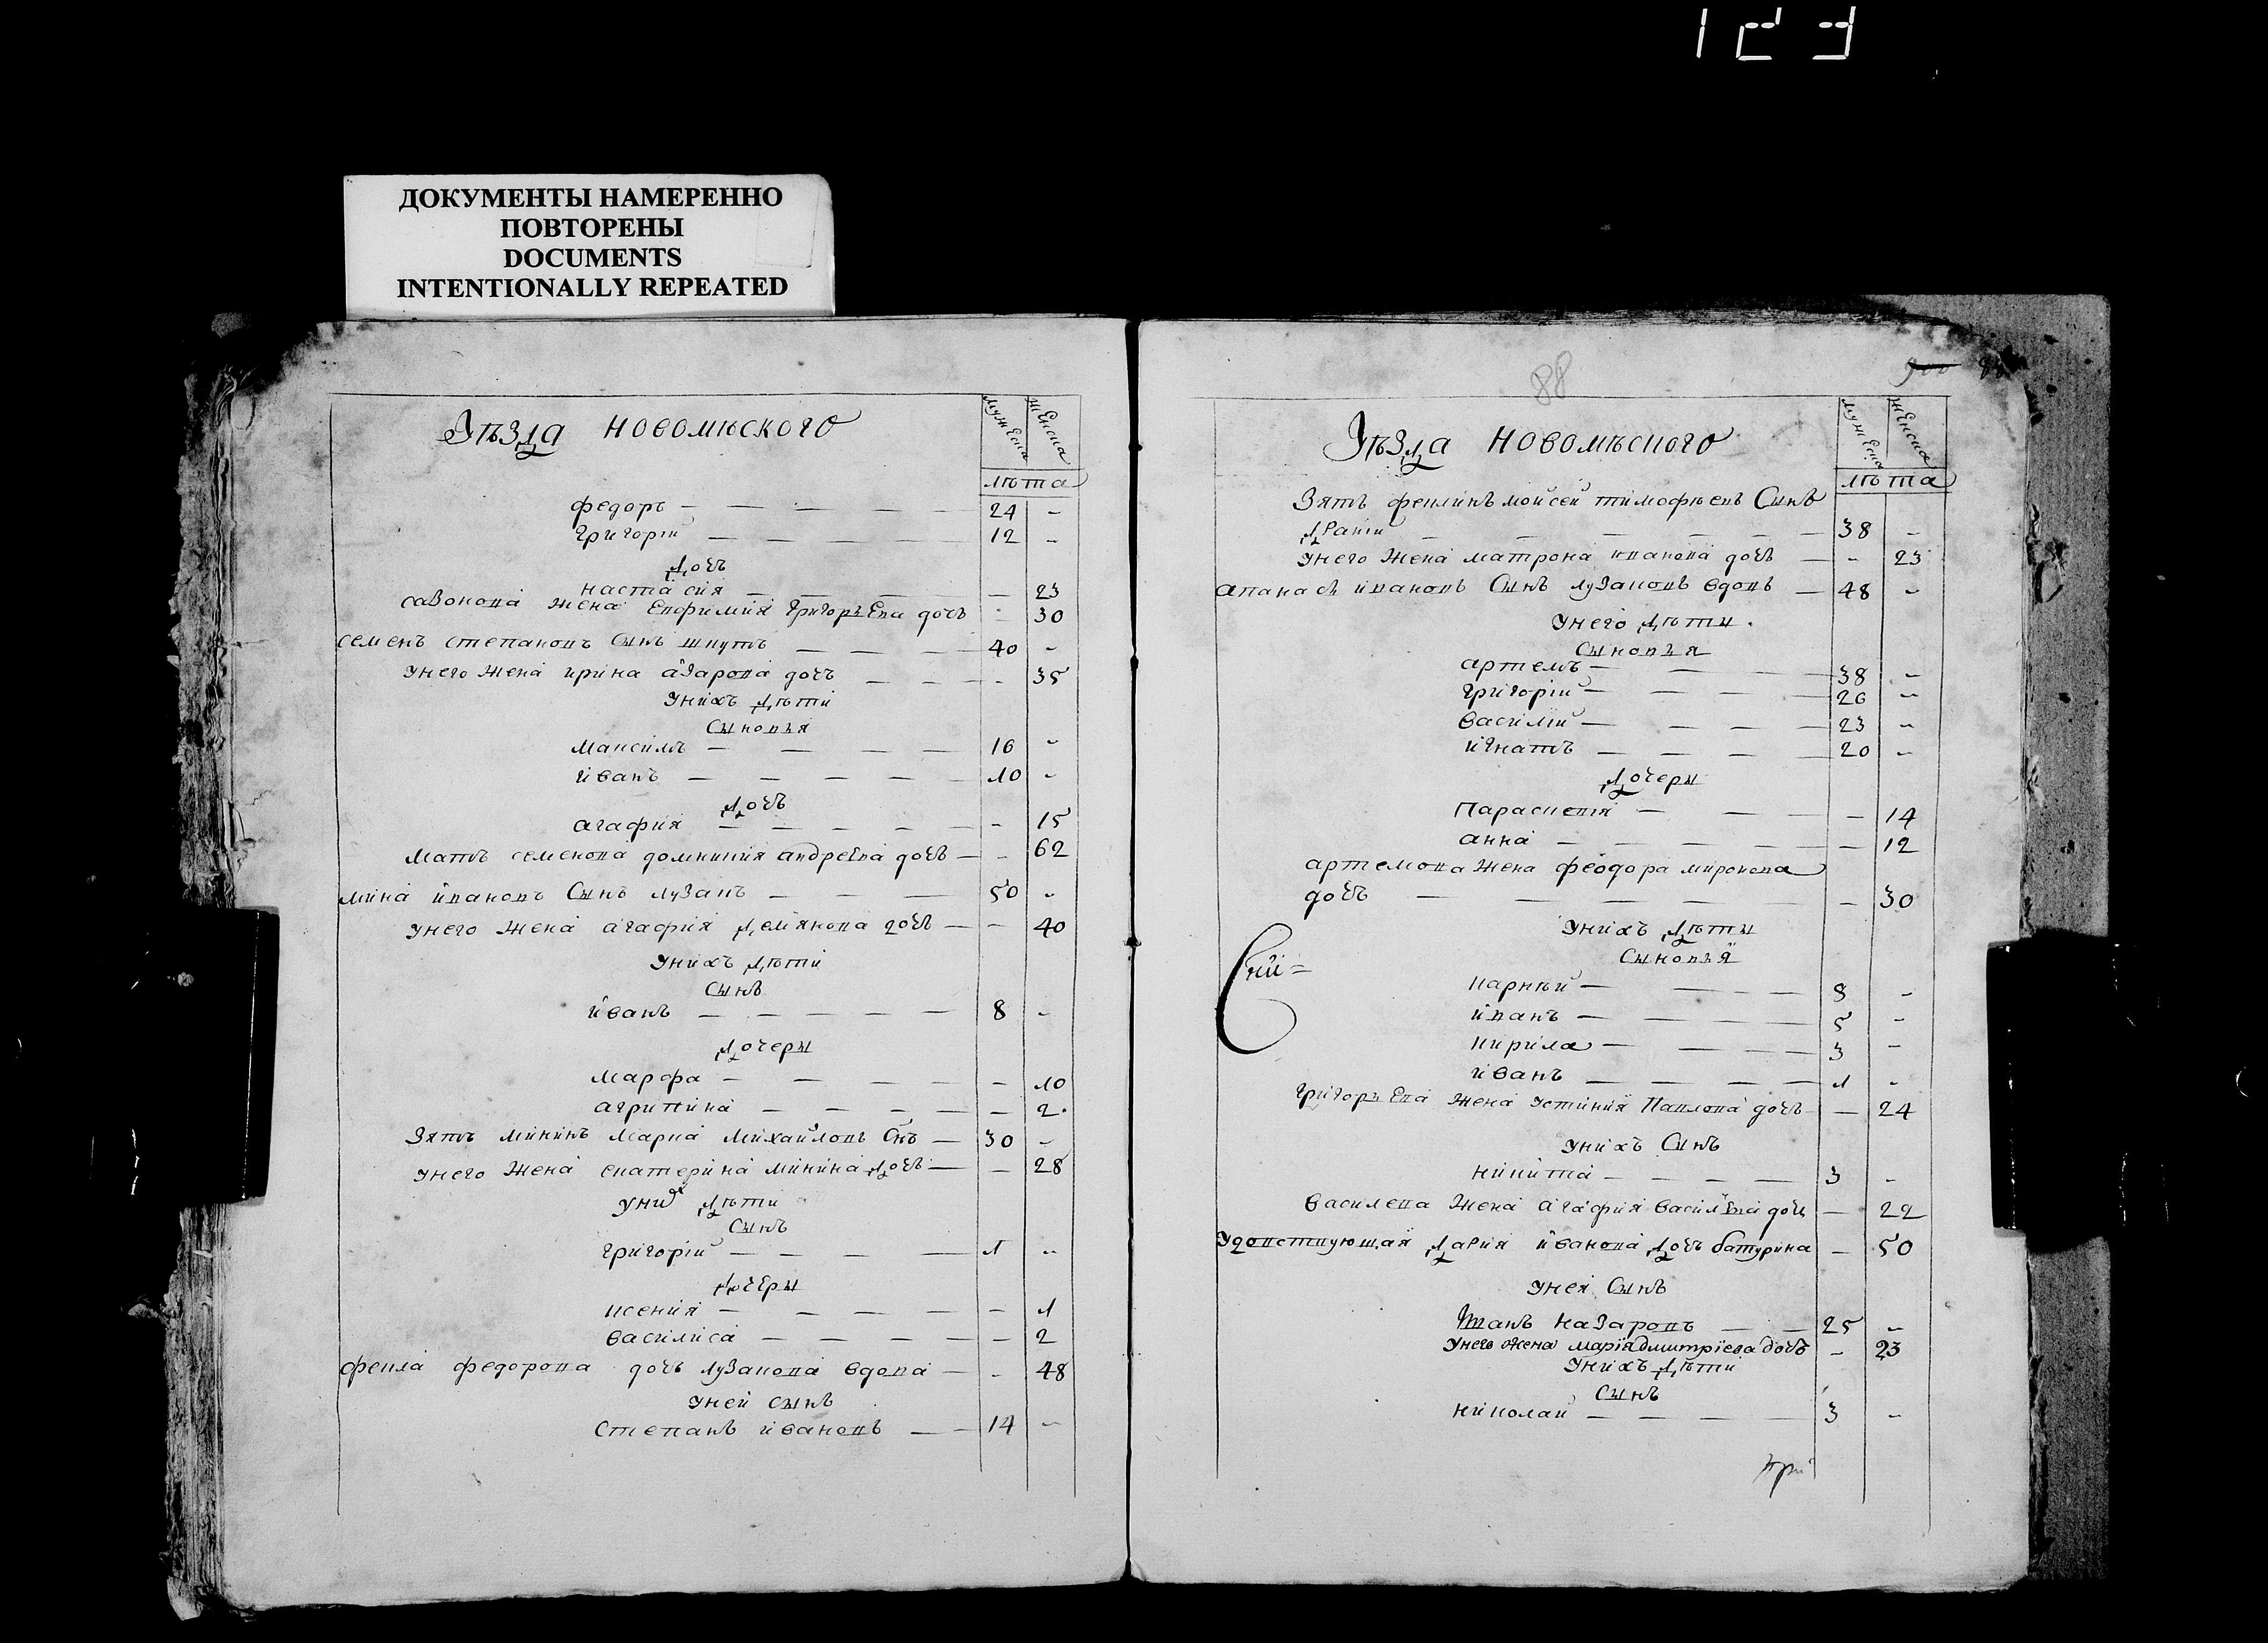 123
ДОКУМЕНТЫ НАМЕРЕННО
ПОВТОРЕНЫ
DOCUMENTS
INTENTIONALLY REPEATED
Уѣзда новомѣского
мужеска
женска
лѣта
федоръ — 24 -
Григорій — 12 -
Дочь
настасия — - 23
савонова жена Евфимия Григорьева дочь - 30
семенъ степановъ Сынъ шкутъ — 40 -
Унего жена ирина азарова дочь — - 35
Унихъ дѣти
Сыновья
максимъ — 16 -
иванъ — 10 -
Дочь
агафия — - 15
мать семенова домникия андреева дочь — - 62
мина ивановъ Сынъ лузанъ — 50 -
унего жена агафия Демянова дочь — - 40
Унихъ дѣти
Сынъ
иванъ — 8 -
Дочеры
марфа — - 10
агрипина — - 2
Зять мининъ марка михайловъ Снъ — 30 -
унего жена екатерина минина дочь — - 28
уних дѣти
Сынъ
григорій — 1 -
Дочеры
ксения — - 1
василиса — - 2
фекла федорова дочь лузанова вдова — - 48
Уней сынъ
степанъ ивановъ — 14 -
88
Уѣзда новомѣского
мужеска
женска
лѣта
Зять феклинъ мойсей тимофѣевъ Сынъ
38 -
унего жена матрона иванова дочь — - 23
апанасъ ивановъ Сынъ лузановъ вдовъ — 48 -
Унего дѣты
Сыновья
артемъ — 38 -
григорій — 26 -
василій — 23 -
игнатъ — 20 -
Дочеры
Параскевия — - 14
анна — - 12
артемова жена феодора миронова
дочь — - 30
Унихъ дѣты
Сыновья
карнѣй — 8 -
иванъ — 5 -
кирила — 3 -
иванъ — 1 -
григорьева жена устиния Павлова дочь — - 24
Унихъ Сынъ
никита — 3 -
василева жена агафия василева дочь — - 22
Удовствующая дария иванова дочь батурина — - 50
Унея Сынъ
назаровъ — 25 -
Унего жена мария дмитріева дочь - 23
Унихъ дѣти
сынъ
николай — 3 -
при